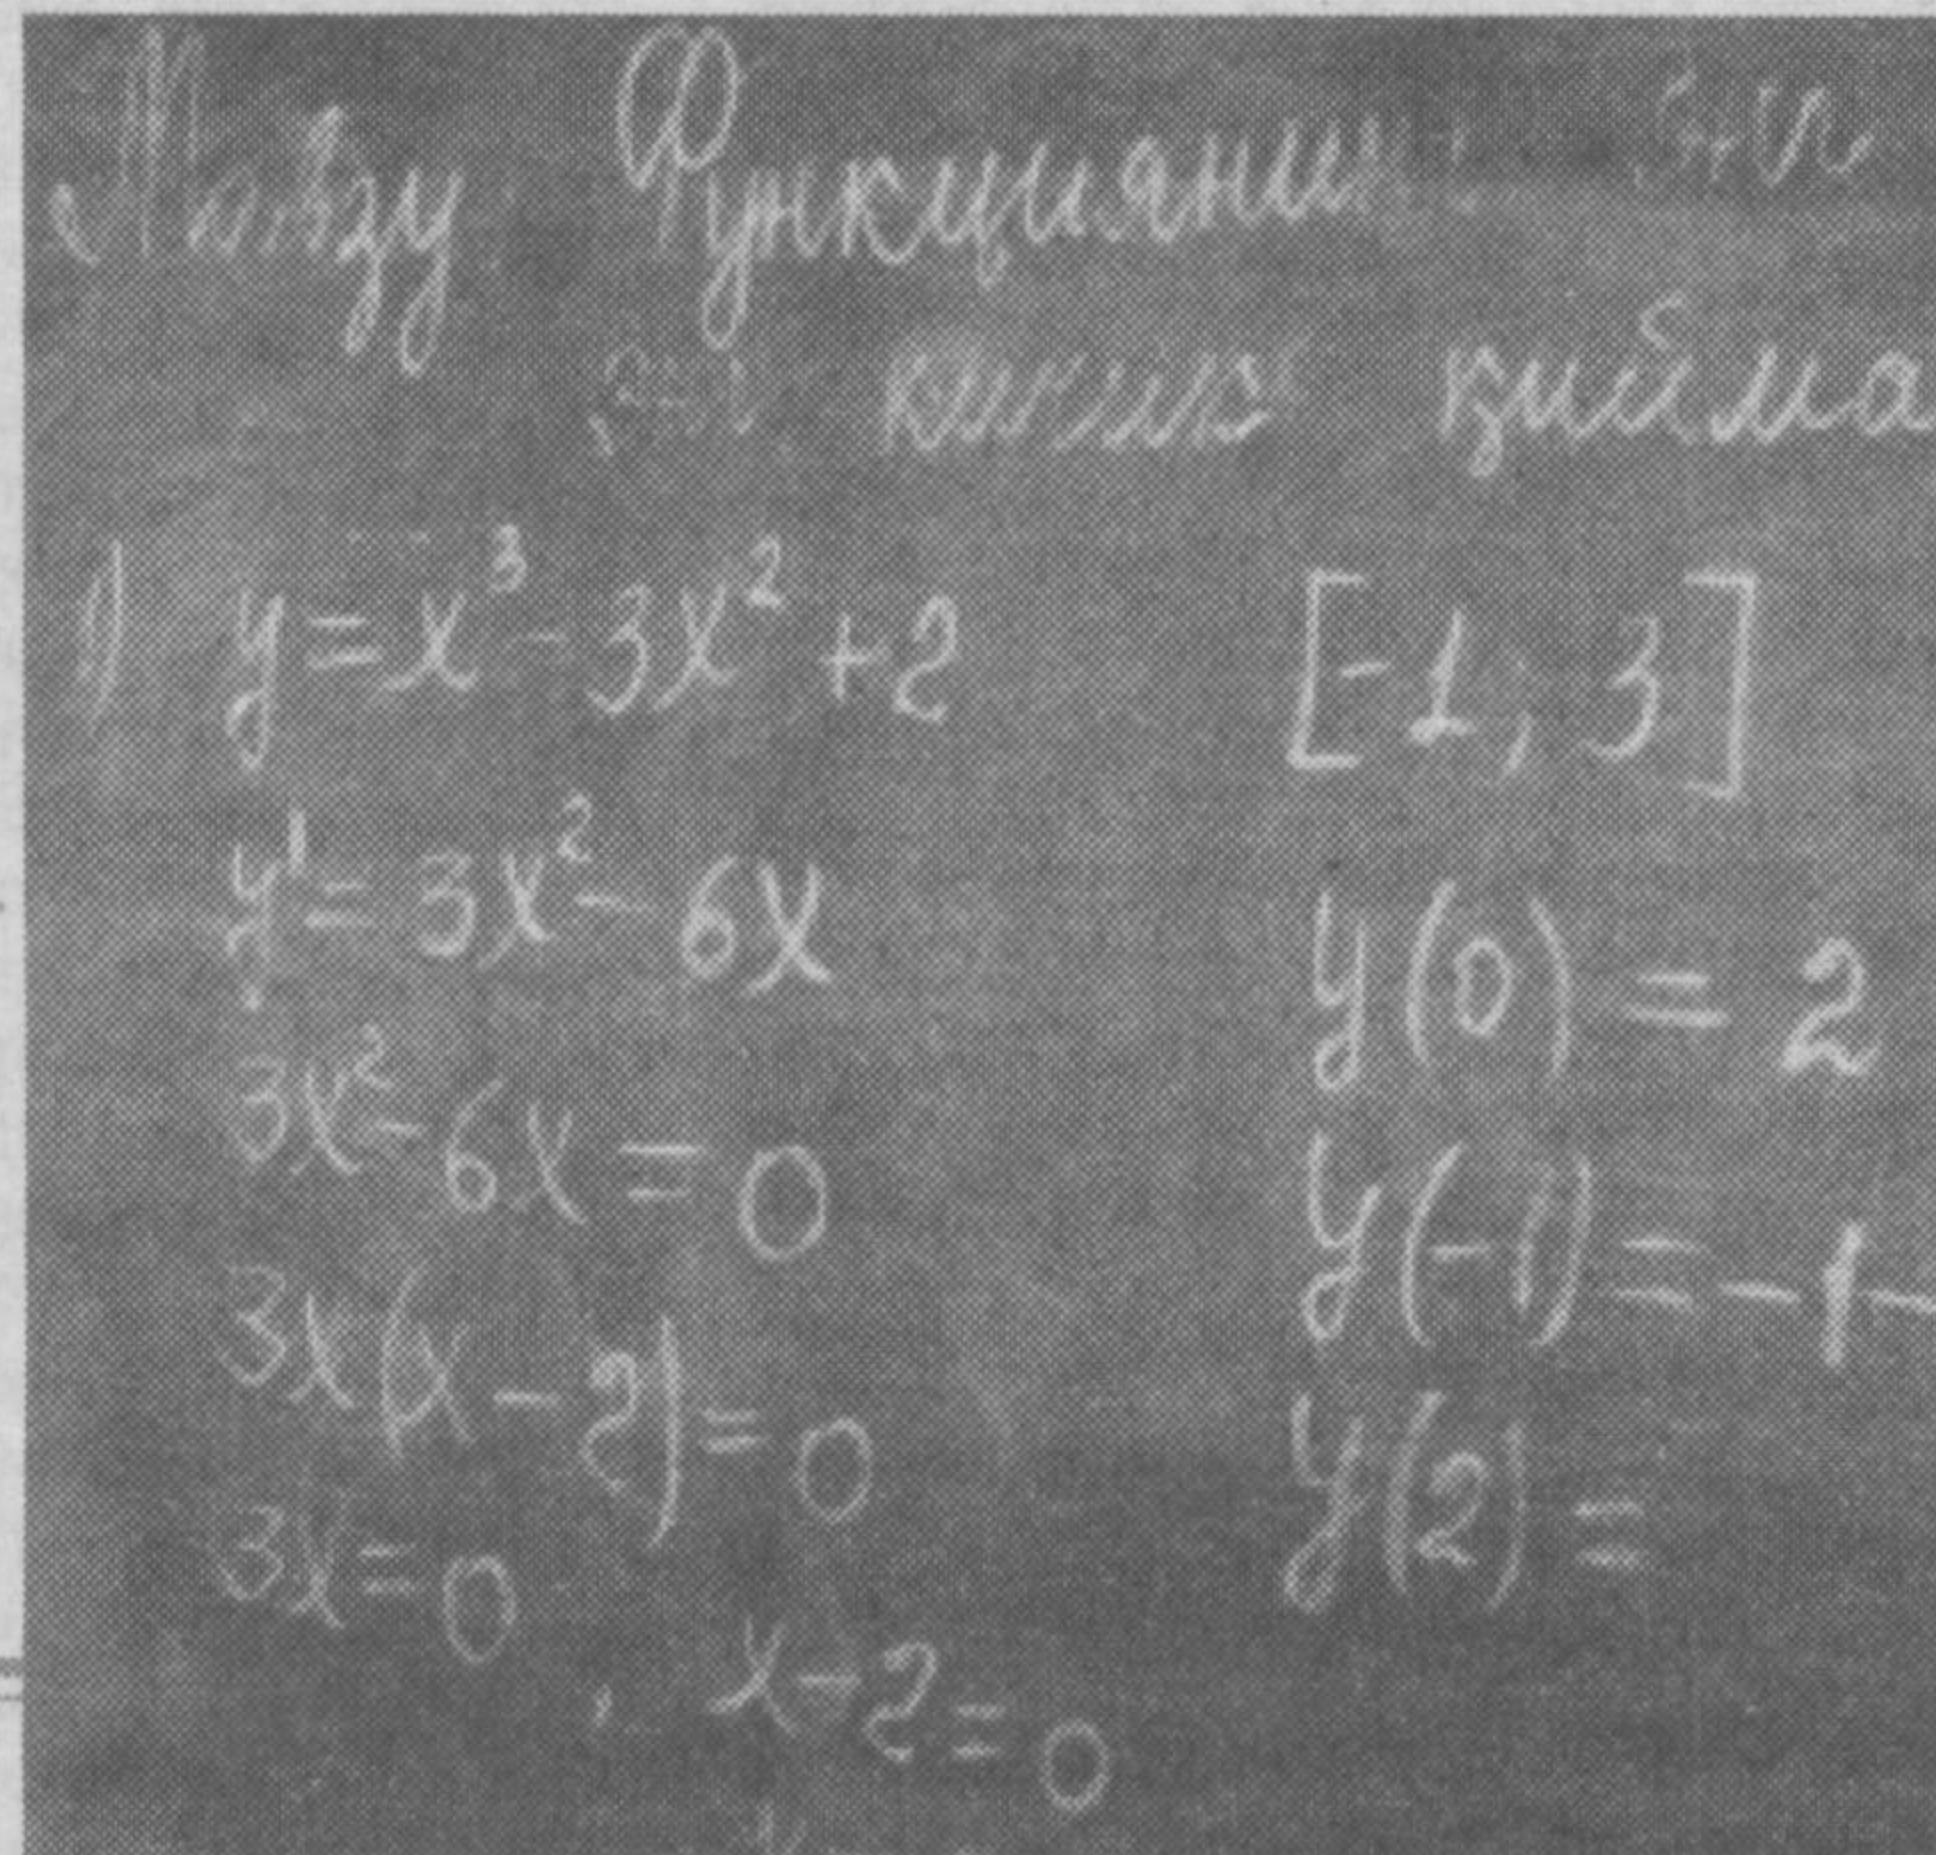 Мавзу: Функциянинг энг
энг кичик қийма
1) y = x³ - 3x² + 2 [-1, 3]
y' = 3x² - 6x y(0) = 2
3x² - 6x = 0 y(-1) = -1 -
3x(x - 2) = 0 y(2) =
3x = 0, x - 2 = 0